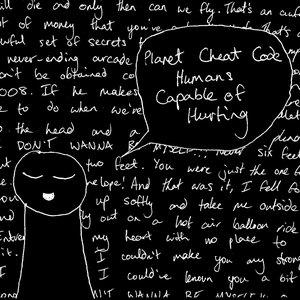 ill die and only then can we fly. That's an
lot of money that you've
wful set of secrets
never-ending arcade
n't be obtained
2008. If he makes
e to do when we're
to the head and a
DON'T WANNA B
MYSELF
six fee
two feet. You were just the one f
elope! And that was it, I fell fo
up softly and take me outside
and
ly out on a hot air balloon ride
my heart with no place to
it.
I couldn't make you my
I could've known you a bit
N'T WANNA BE MYSELF
Planet Cheat Code
Humans
Capable of
Hurting